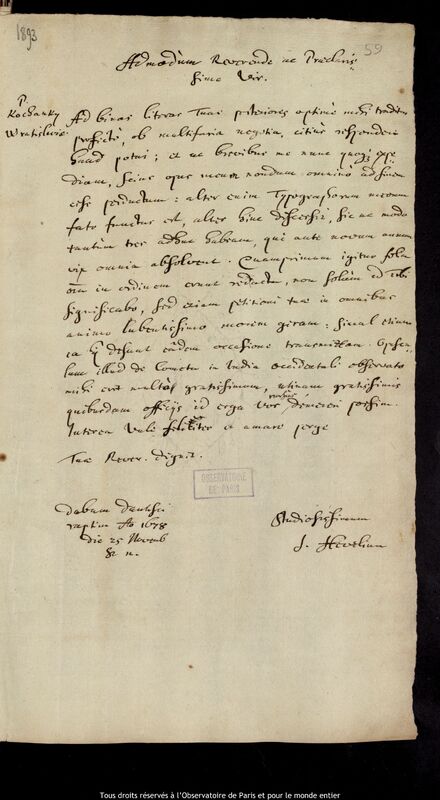 1893
59
Admodum Reverende ac Praeclaris-
sime Vir.
P.
Kochansky
Wratislviae.
Ad binas literas Tuas posteriores optime mihi traditas
profecto, ob multifaria negotia, citius respondere
haud potui; et ne brevibus me nunc
diam, scias opus meum nondum omnino ad finem
esse perductum: alter enim Typographorum meorum
fato functus est, alter hinc discessit, sic ut modo
tantum tres adhuc habeam, qui ante novum annum
vix omnia absolvent. Quamprimum igitur folia
omnia in ordinem erunt redacta, non solum id tibi
significabo, sed etiam petitioni tuae in omnibus
animo lubentissimo morem geram; simul etiam
ea quae desunt eadem occasione transmittam. Opuscu-
lum illud de Cometa in India occidentali observato
mihi erit multo gratissimum, utinam gratissimis
quibusdam officiis id erga vos rursus demereri possim.
Interea Vale feliciter et amare perge
Tuae Rever. Dignit.
OBSERVATOIRE
DE PARIS
Dabam Dantisci
raptim Ao 1678
die 25 Novemb
st. n.
Studiosissimum
J. Hevelium
Tous droits réservés à l'Observatoire de Paris et pour le monde entier